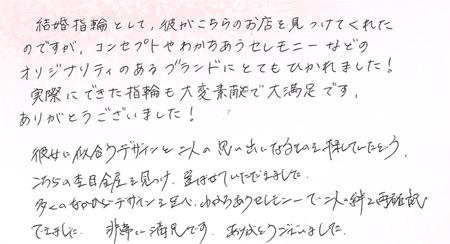 結婚指輪として、彼がこちらのお店を見つけてくれた
のですが、コンセプトやわかちあうセレモニーなどの
オリジナリティのあるブランドにとてもひかれました!
実際にできた指輪も大変素敵で大満足です。
ありがとうございました!
彼女に似合うデザインと二人の思い出になるものを探していたところ、
こちらの杢目金屋を見つけ、選ばせていただきました。
多くのなかからデザインを選べ、わかちあうセレモニーで二人の絆を再確認
できました。 非常に満足です。 ありがとうございました。